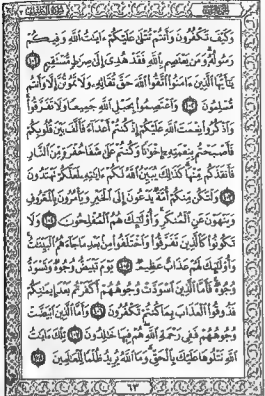 وَكَيْفَ تَكْفُرُونَ وَأَنتُمْ تُتْلَىٰ عَلَيْكُمْ ءَايَٰتُ ٱللَّهِ وَفِيكُمْ
رَسُولُهُۥ وَمَن يَعْتَصِم بِٱللَّهِ فَقَدْ هُدِىَ إِلَىٰ صِرَٰطٍ مُّسْتَقِيمٍ ١٠١
يَٰٓأَيُّهَا ٱلَّذِينَ ءَامَنُوا۟ ٱتَّقُوا۟ ٱللَّهَ حَقَّ تُقَاتِهِۦ وَلَا تَمُوتُنَّ إِلَّا وَأَنتُم
مُّسْلِمُونَ ١٠٢ وَٱعْتَصِمُوا۟ بِحَبْلِ ٱللَّهِ جَمِيعًا وَلَا تَفَرَّقُوا۟
وَٱذْكُرُوا۟ نِعْمَتَ ٱللَّهِ عَلَيْكُمْ إِذْ كُنتُمْ أَعْدَآءً فَأَلَّفَ بَيْنَ قُلُوبِكُمْ
فَأَصْبَحْتُم بِنِعْمَتِهِۦٓ إِخْوَٰنًا وَكُنتُمْ عَلَىٰ شَفَا حُفْرَةٍ مِّنَ ٱلنَّارِ
فَأَنقَذَكُم مِّنْهَا كَذَٰلِكَ يُبَيِّنُ ٱللَّهُ لَكُمْ ءَايَٰتِهِۦ لَعَلَّكُمْ تَهْتَدُونَ
١٠٣ وَلْتَكُن مِّنكُمْ أُمَّةٌ يَدْعُونَ إِلَى ٱلْخَيْرِ وَيَأْمُرُونَ بِٱلْمَعْرُوفِ
وَيَنْهَوْنَ عَنِ ٱلْمُنكَرِ وَأُو۟لَٰٓئِكَ هُمُ ٱلْمُفْلِحُونَ ١٠٤ وَلَا
تَكُونُوا۟ كَٱلَّذِينَ تَفَرَّقُوا۟ وَٱخْتَلَفُوا۟ مِنۢ بَعْدِ مَا جَآءَهُمُ ٱلْبَيِّنَٰتُ
وَأُو۟لَٰٓئِكَ لَهُمْ عَذَابٌ عَظِيمٌ ١٠٥ يَوْمَ تَبْيَضُّ وُجُوهٌ وَتَسْوَدُّ
وُجُوهٌ فَأَمَّا ٱلَّذِينَ ٱسْوَدَّتْ وُجُوهُهُمْ أَكَفَرْتُم بَعْدَ إِيمَٰنِكُمْ
فَذُوقُوا۟ ٱلْعَذَابَ بِمَا كُنتُمْ تَكْفُرُونَ ١٠٦ وَأَمَّا ٱلَّذِينَ ٱبْيَضَّتْ
وُجُوهُهُمْ فَفِى رَحْمَةِ ٱللَّهِ هُمْ فِيهَا خَٰلِدُونَ ١٠٧ تِلْكَ ءَايَٰتُ
ٱللَّهِ نَتْلُوهَا عَلَيْكَ بِٱلْحَقِّ وَمَا ٱللَّهُ يُرِيدُ ظُلْمًا لِّلْعَٰلَمِينَ ١٠٨
٦٣